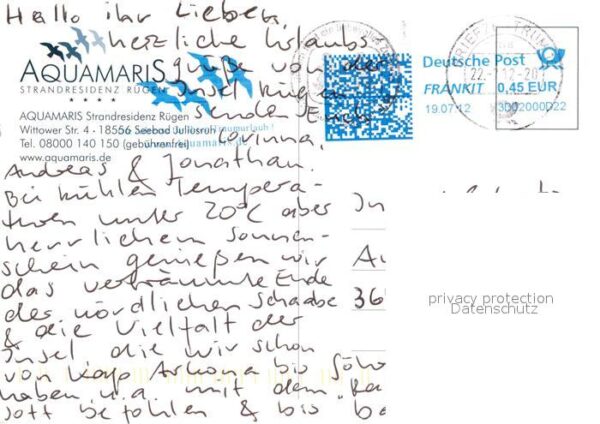 Hallo ihr Lieben,
herzliche Urlaubs
grüße von der
Insel Rügen
senden Euch
Corinna,
Andreas & Jonathan.
Bei kühlen Tempera-
turen unter 20°C aber
herrlichem Sonnen-
schein genießen wir
das verträumte Ende
der nördlichen Schaabe
& die Vielfalt der
Insel die wir schon
von Kap Arkona bis
haben u.a. mit dem
bis
AQUAMARIS
STRANDRESIDENZ RÜGEN
★ ★ ★ ★
AQUAMARIS Strandresidenz Rügen
Wittower Str. 4 · 18556 Seebad Juliusruh
Tel. 08000 140 150 (gebührenfrei)
www.aquamaris.de
Deutsche Post
FRANKIT 0,45 EUR
19.07.12 3D02000D22
BRIEFZENTRUM
22.-7.12-20
36
privacy protection
Datenschutz